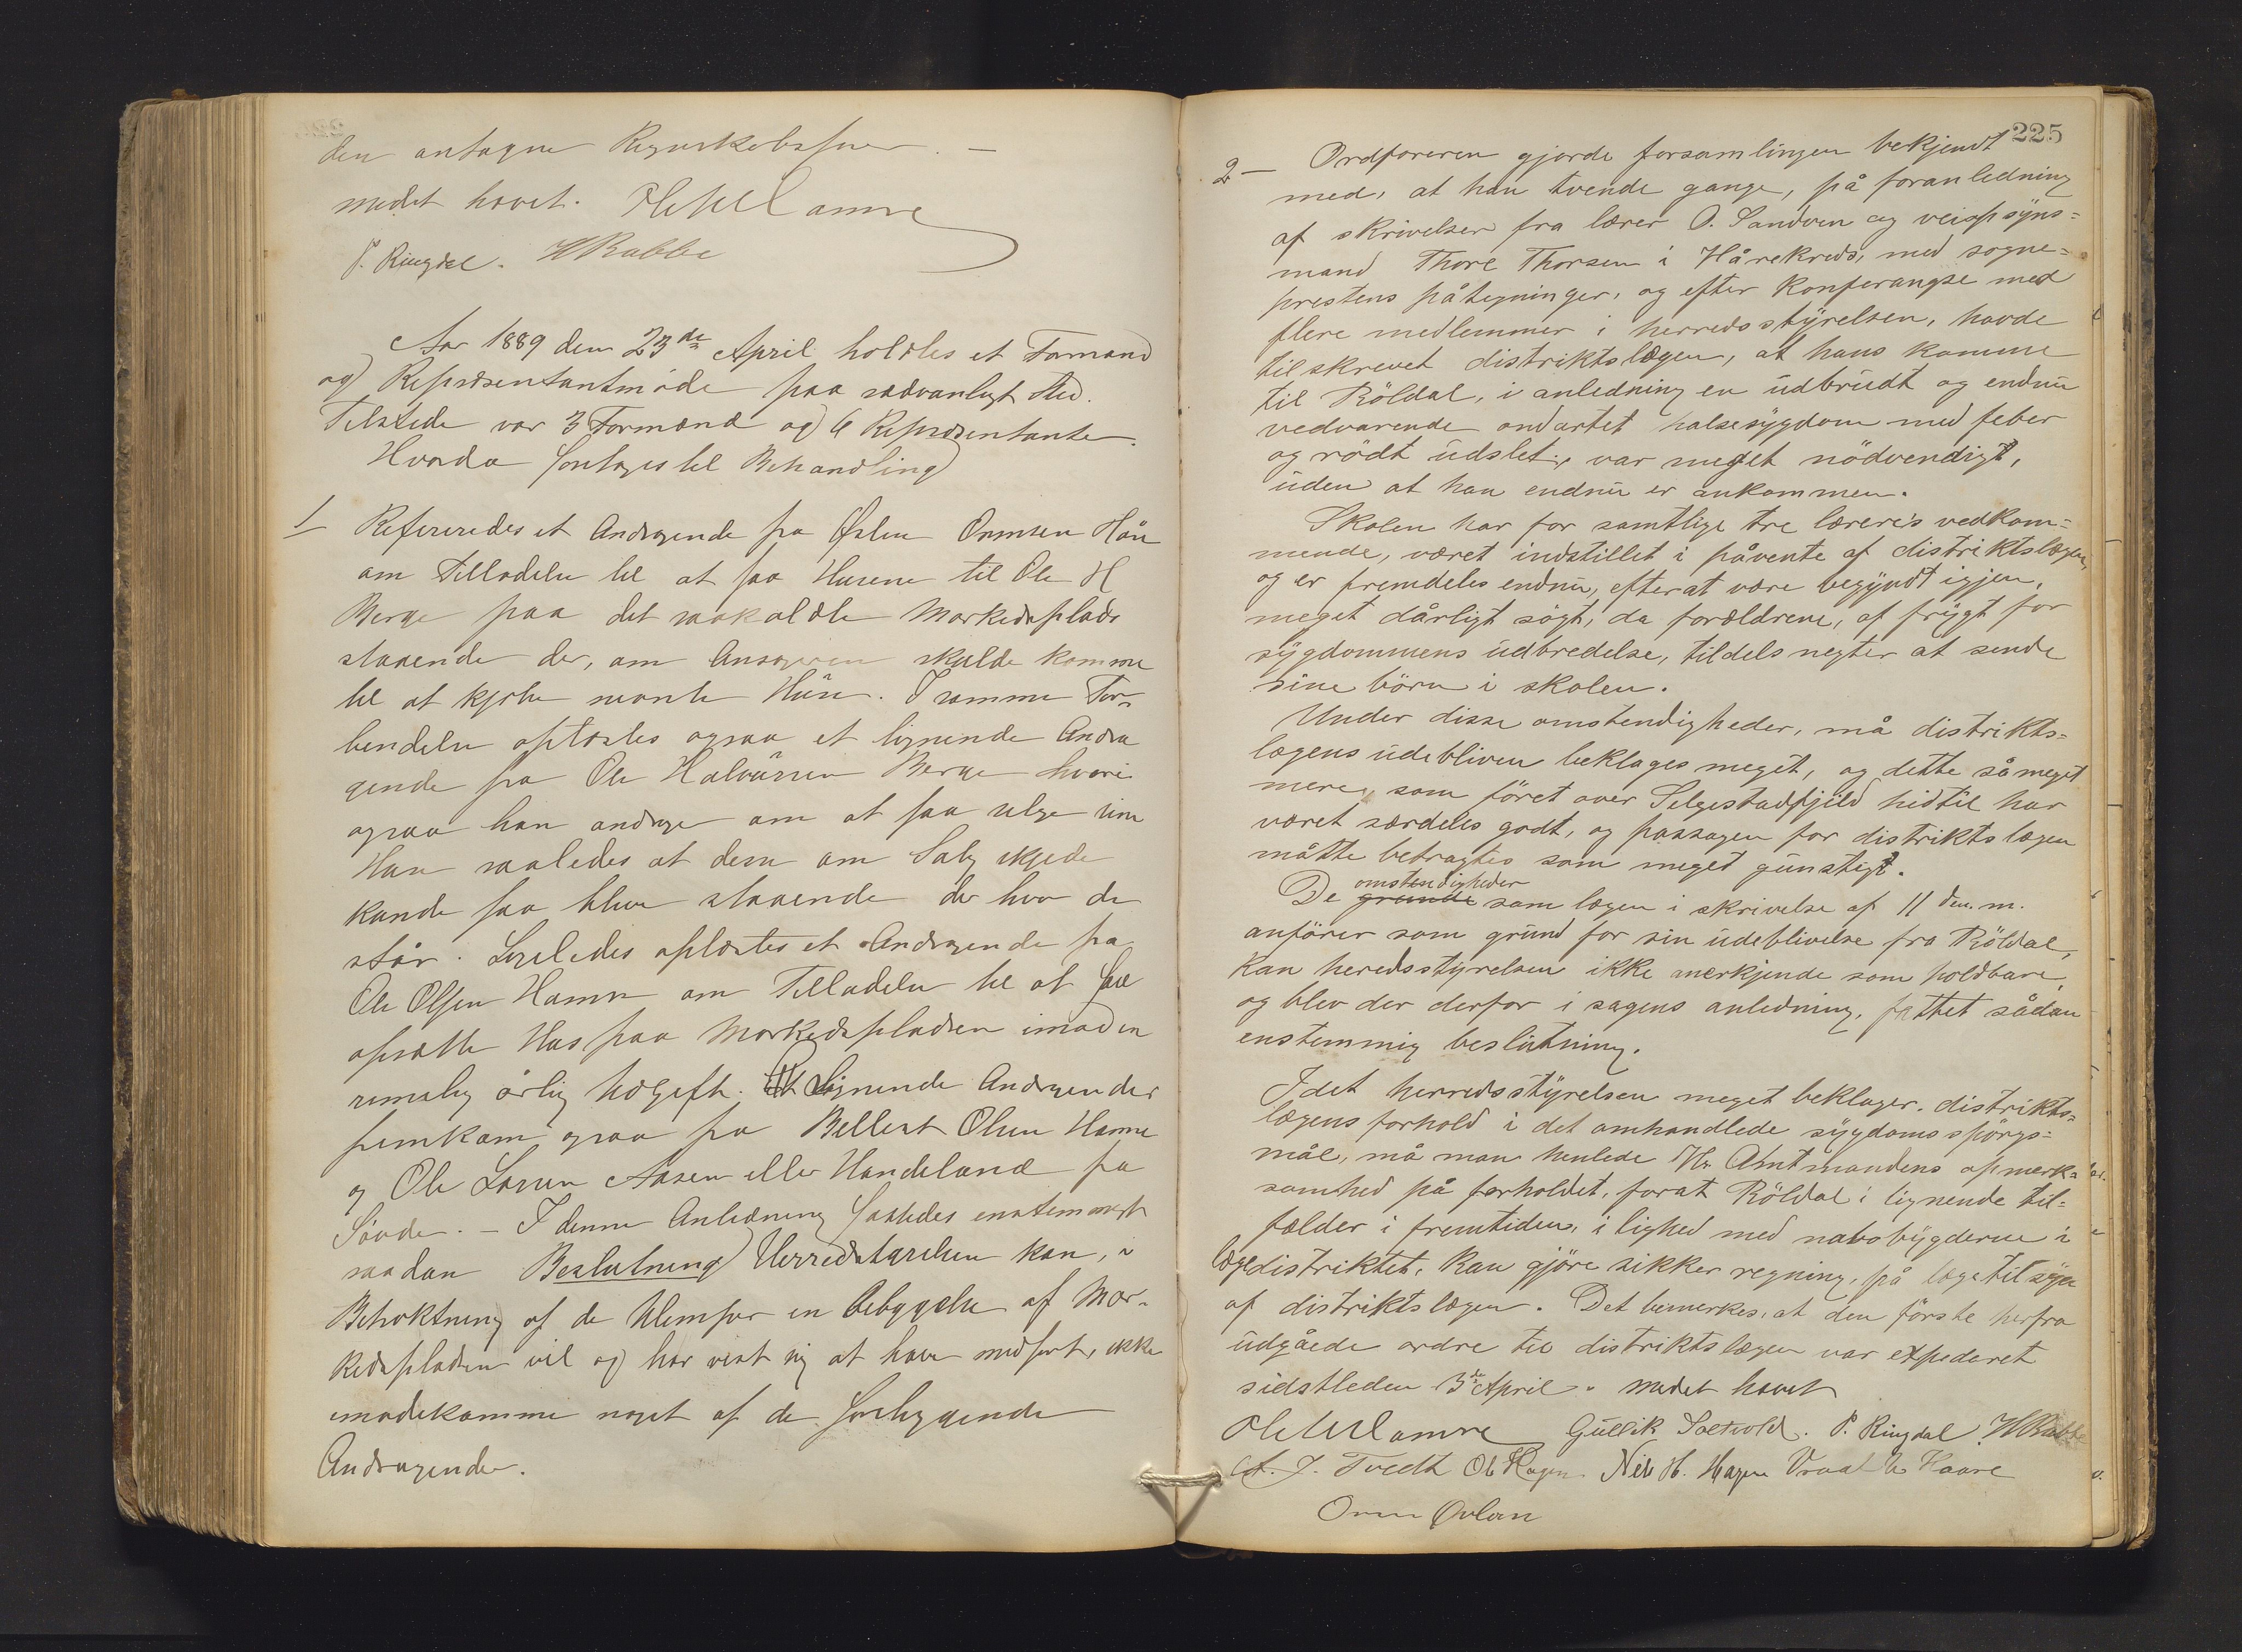 den antagne Regnskabsfører. —
mødet hævet. O Hamre
P. Ringdal. H Rabbe
Aar 1889 den 23de April holdtes et Formand
og Repræsentantmøde paa sædvanligt Sted.
Tilstede var 3 Formænd og 6 Repræsentanter.
Hvorda foretoges til Behandling
1 Refereredes et Andragende fra Østen Ormsen Håre
om Tilladelse til at faa Husene til Ole H
Berge paa det saakaldte Markedsplads
staaende der, om Ansøgeren skulde komme
til at kjøbe nævnte Hûse. I samme For-
bindelse oplæstes ogsaa et lignende Andra
gende fra Ole Halvårsen Berge hvori
ogsaa han andrager om at faa selge sine
Huse saaledes at dem om Salg skjede
kunde faa blive staaende der hvor de
står. Ligeledes oplæstes et Andragende fra
Ole Olsen Hamre om Tilladelse til at faa
opsætte Hus paa Markedspladsen imod en
rimelig årlig Afgift. Lignende Andragender
fremkom ogsaa fra Bellest Olsen Hamre
og Ole Larsen Aasen eller Handeland fra
Søvde. — I denne Anledning fattedes enstemmigt
saadan Beslutning Herredstyrelsen kan, i
Betraktning af de Ulemper en Bebyggelse af Mar-
kedspladsen vil og har vist sig at have medført, ikke
imødekomme noget af de foreliggende
Andragender.
225
2 — Ordføreren gjorde forsamlingen bekjendt
med, at han tvende gange, på foranledning
af skrivelser fra lærer O. Sandven og veiopsÿns=
mand Thore Thorsen i Hårekreds, med sogne=
prestens påtegninger, og efter konferangse med
flere medlemmer i herredsstÿrelsen, havde
tilskrevet distriktslægen, at hans komme
til Röldal, i anledning en ûdbrûdt og endnû
vedvarende ondartet halssÿgdom med feber
og rödt ûdslet, var meget nödvendigt,
ûden at han endnû er ankommen.
Skolen har for samtlige tre lærere's vedkom=
mende, været indstillet i påvente af distriktslægen,
og er fremdeles endnû, efterat være begÿndt igjen,
meget dårligt sögt, da forældrene, af frÿgt for
sÿgdommens ûdbredelse, tildels negter at sende
sine börn i skolen.
Under disse omstendigheder, må distrikts=
lægens ûdebliven beklages meget, og dette så meget
mere, som föret over Selgestadfjild hidtil har
været særdeles godt, og passagen for distriktslægen
måtte betragtes som meget gûnstigt.
omstendigheder
De grunde som lægen i skrivelse af 11 den. m.
anförer som grûnd for sin ûdeblivelse fra Röldal,
kan heredsstÿrelsen ikke anerkjende som holdbare,
og blev der derfor i sagens anledning, fattet sådan
enstemmig beslûtning.
Idet herredsstÿrelsen meget beklager distrikts=
lægens forhold i det omhandlede sÿgdomsspörgs=
mål, må man henlede Hr. Amtmandens opmærk=
somhed på forholdet, forat Röldal i lignende til=
fælder i fremtiden, i lighed med nabobÿgderne i
lægedistriktet, kan gjöre sikker regning, på lægetilsÿn
af distriktslægen. Det bemerkes, at den förste herfra
ûdgåede ordre til distriktslægen var expederet
sidstleden 3de April. mødet hævet
O Hamre Gûllik Saltvold. P. Ringdal H Rabbe
A. J. Tvedt Ol Hagen. Nels H. Hagen Vraal Haare
Orm Øvlan